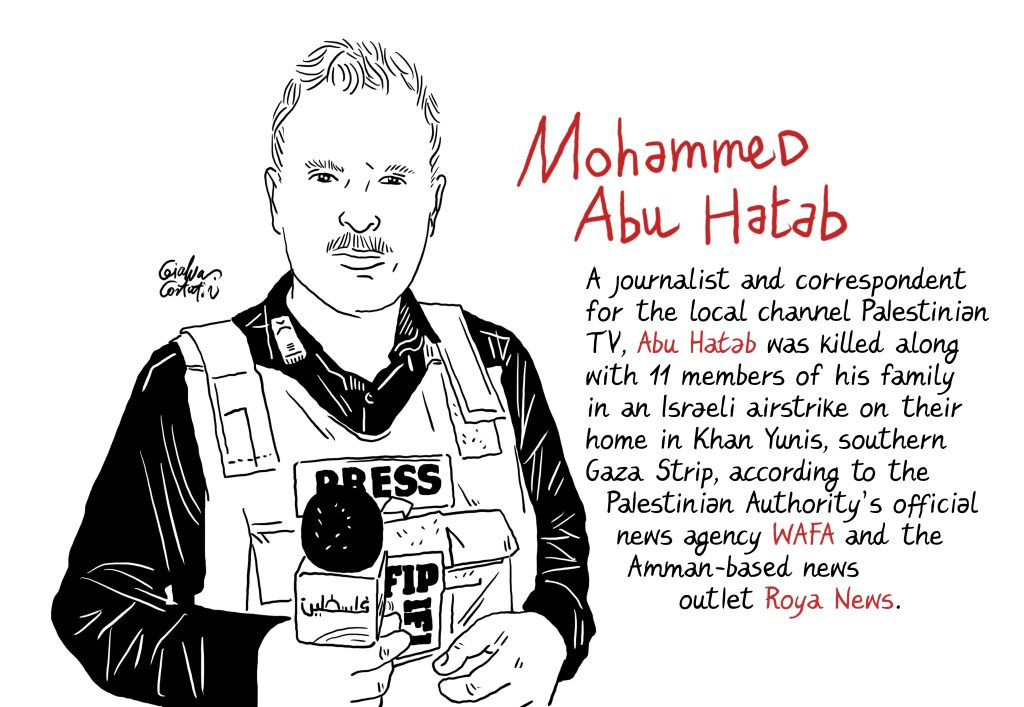 Mohammed
Abu Hatab
A journalist and correspondent
for the local channel Palestinian
TV, Abu Hatab was killed along
with 11 members of his family
in an Israeli airstrike on their
home in Khan Yunis, southern
Gaza Strip, according to the
Palestinian Authority's official
news agency WAFA and the
Amman-based news
outlet Roya News.
PRESS
FIP
IFJ
فلسطين